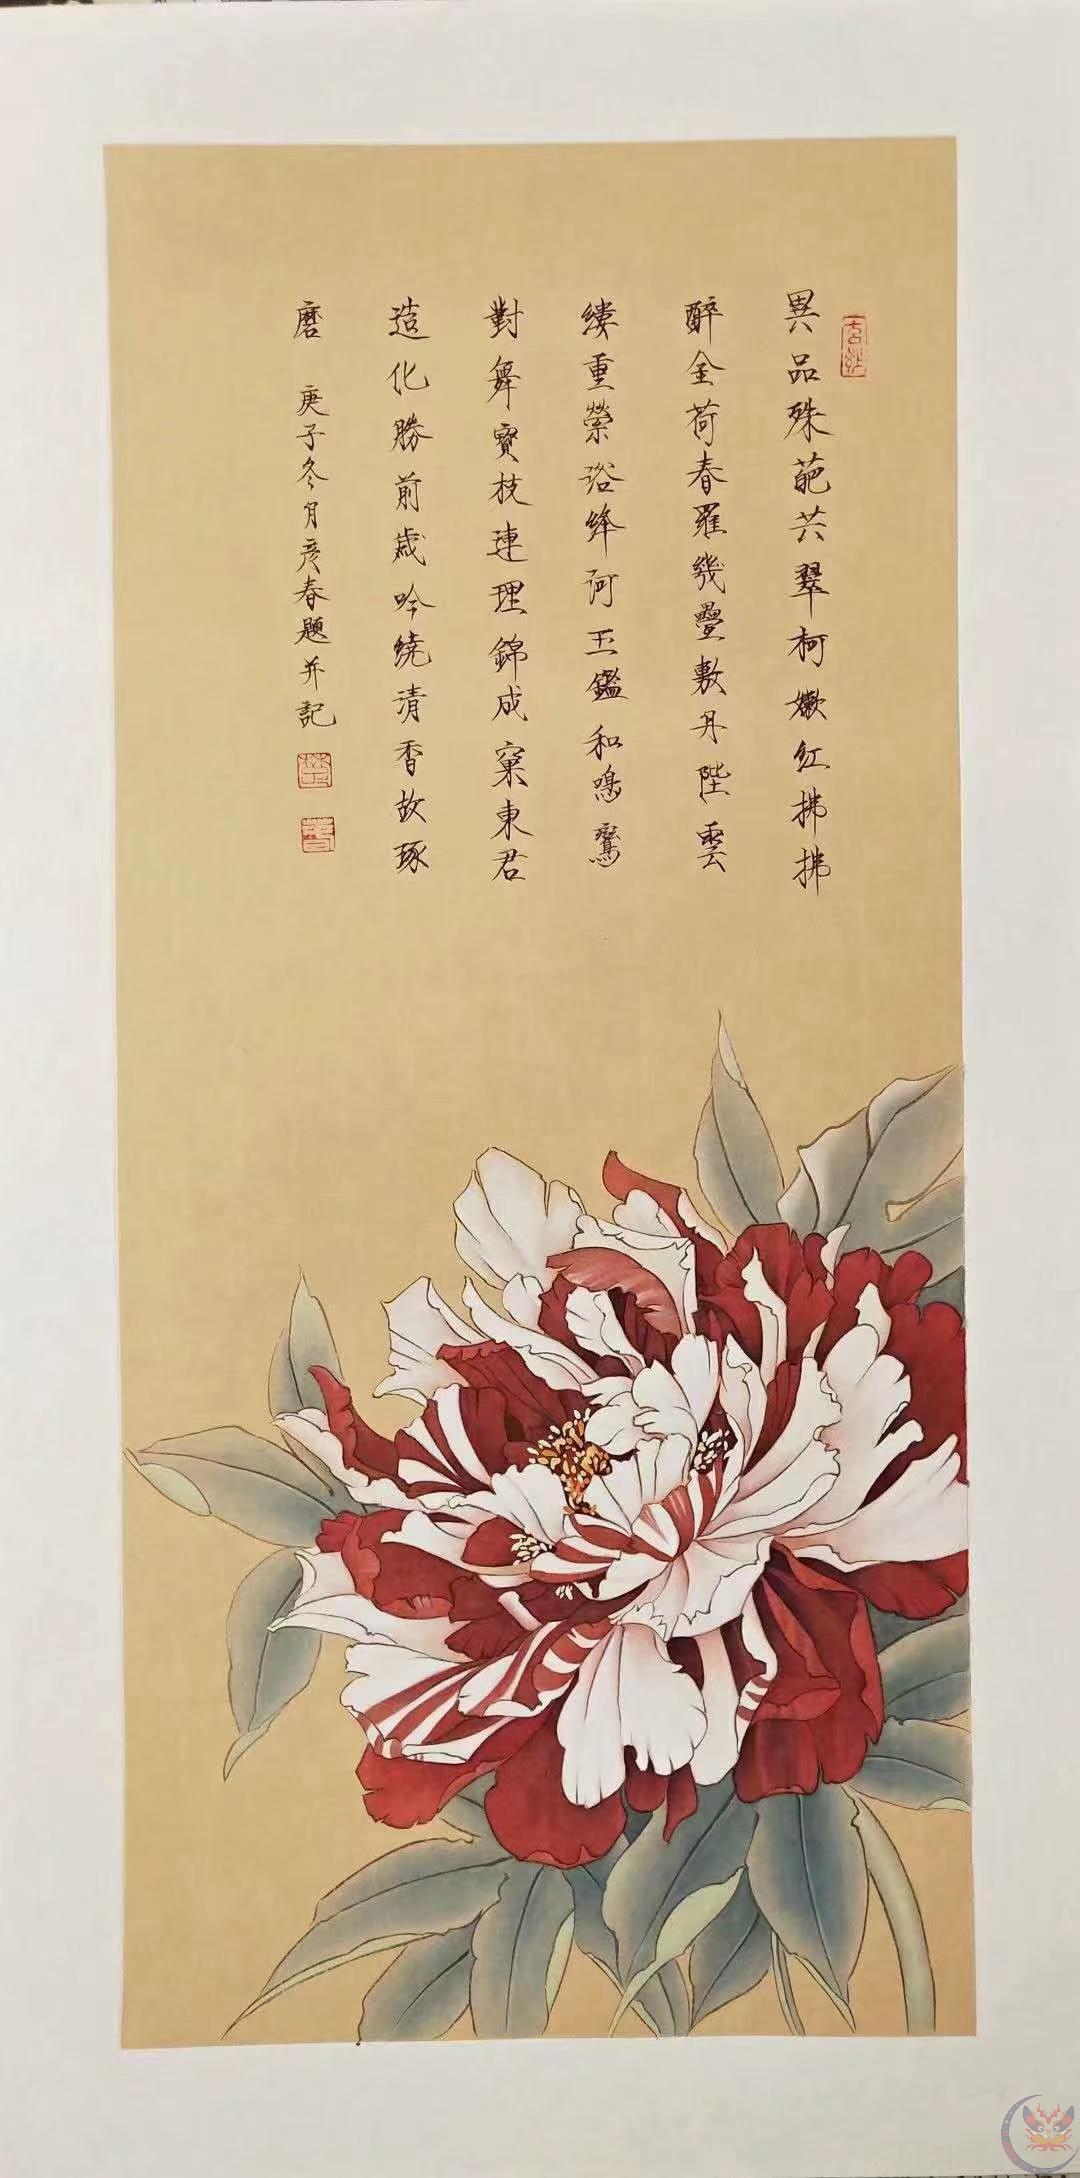 異品殊葩共翠柯嫩紅拂拂
醉金荷春羅幾疊敷丹陛雲
縷重縈浴絳河玉鑑和鳴鸞
對舞寶枝連理錦成窠東君
造化勝前歲吟繞清香故琢
磨
庚子冬月彥春題并記